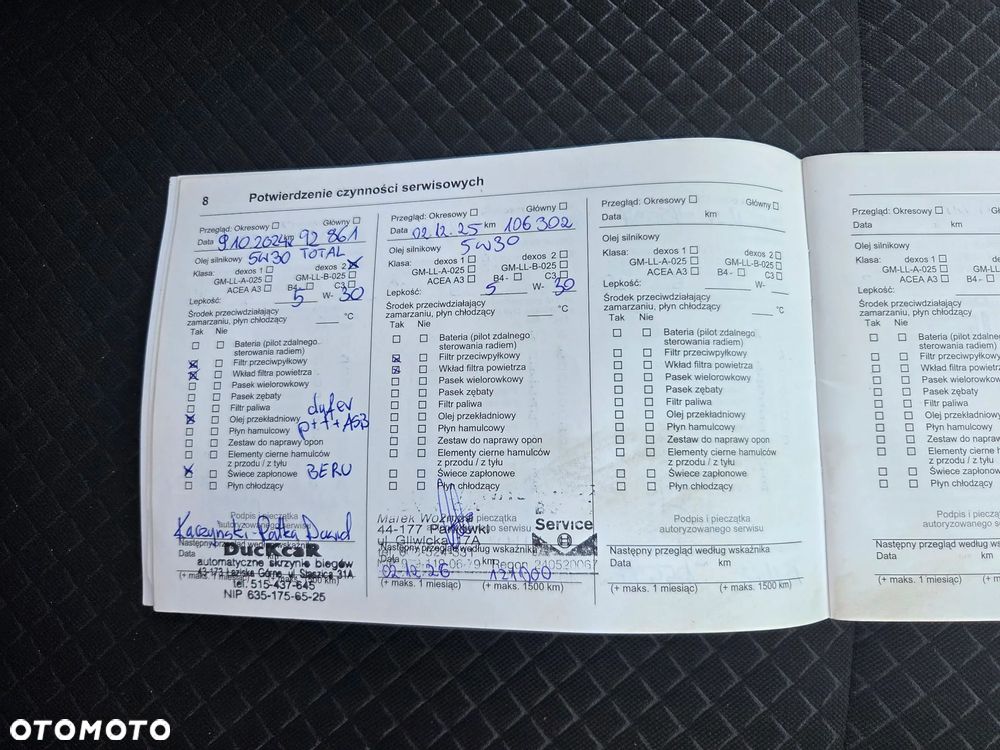 8 Potwierdzenie czynności serwisowych
Przegląd: Okresowy Główny
Data 9.10.2024 92 861
Olej silnikowy 5W30 TOTAL
Klasa: dexos 1 dexos 2
GM-LL-A-025 GM-LL-B-025
ACEA A3 B4- C3
Lepkość: 5 W- 30
Środek przeciwdziałający
zamarzaniu, płyn chłodzący °C
Tak Nie
Bateria (pilot zdalnego
sterowania radiem)
Filtr przeciwpyłkowy
Wkład filtra powietrza
Pasek wielorowkowy
Pasek zębaty
Filtr paliwa
Olej przekładniowy
Płyn hamulcowy
Zestaw do naprawy opon
Elementy cierne hamulców
z przodu / z tyłu
Świece zapłonowe BERU
Płyn chłodzący
Podpis i pieczątka
autoryzowanego serwisu
Następny przegląd według wskaźnika
Data
DucKcaR
automatyczne skrzynie biegów
43-173 Łaziska Górne, ul. Staszica 31A
tel. 515-437-645
NIP 635-175-65-25
(+ maks. 1 miesiąc)
Przegląd: Okresowy Główny
Data 02.12.25 km 106 302
Olej silnikowy 5W30
Klasa: dexos 1 dexos 2
GM-LL-A-025 GM-LL-B-025
ACEA A3 B4- C3
Lepkość: 5 W- 30
Środek przeciwdziałający
zamarzaniu, płyn chłodzący °C
Tak Nie
Bateria (pilot zdalnego
sterowania radiem)
Filtr przeciwpyłkowy
Wkład filtra powietrza
Pasek wielorowkowy
Pasek zębaty
Filtr paliwa
Olej przekładniowy
Płyn hamulcowy
Zestaw do naprawy opon
Elementy cierne hamulców
z przodu / z tyłu
Świece zapłonowe
Płyn chłodzący
Podpis i pieczątka
Marek
44-177
ul. Gliwicka
Service
Następny przegląd według wskaźnika
Data km
02.12.26 121000
(+ maks. 1 miesiąc) (+ maks. 1500 km)
Przegląd: Okresowy Główny
Data km
Olej silnikowy
Klasa: dexos 1 dexos 2
GM-LL-A-025 GM-LL-B-025
ACEA A3 B4- C3
Lepkość: W-
Środek przeciwdziałający
zamarzaniu, płyn chłodzący °C
Tak Nie
Bateria (pilot zdalnego
sterowania radiem)
Filtr przeciwpyłkowy
Wkład filtra powietrza
Pasek wielorowkowy
Pasek zębaty
Filtr paliwa
Olej przekładniowy
Płyn hamulcowy
Zestaw do naprawy opon
Elementy cierne hamulców
z przodu / z tyłu
Świece zapłonowe
Płyn chłodzący
Podpis i pieczątka
autoryzowanego serwisu
Następny przegląd według wskaźnika
Data km
(+ maks. 1 miesiąc) (+ maks. 1500 km)
Przegląd: Okresowy Główny
Data km
Olej silnikowy
Klasa: dexos 1
GM-LL-A-025
ACEA A3 B4-
Lepkość: W-
Środek przeciwdziałający
zamarzaniu, płyn chłodzący
Tak Nie
Bateria (pilot zdalnego
sterowania radiem)
Filtr przeciwpyłkowy
Wkład filtra powietrza
Pasek wielorowkowy
Pasek zębaty
Filtr paliwa
Olej przekładniowy
Płyn hamulcowy
Zestaw do naprawy opon
Elementy cierne hamulców
z przodu / z tyłu
Świece zapłonowe
Płyn chłodzący
Podpis i pieczątka
autoryzowanego serwisu
Następny przegląd według wskaźnika
Data km
(+ maks. 1 miesiąc) (+ maks. 1500 km)
OTOMOTO